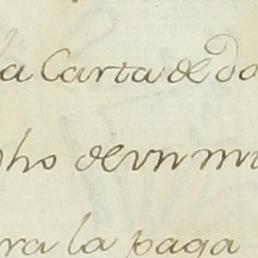 la Carta de Do
pho de vn mi
ra la paga